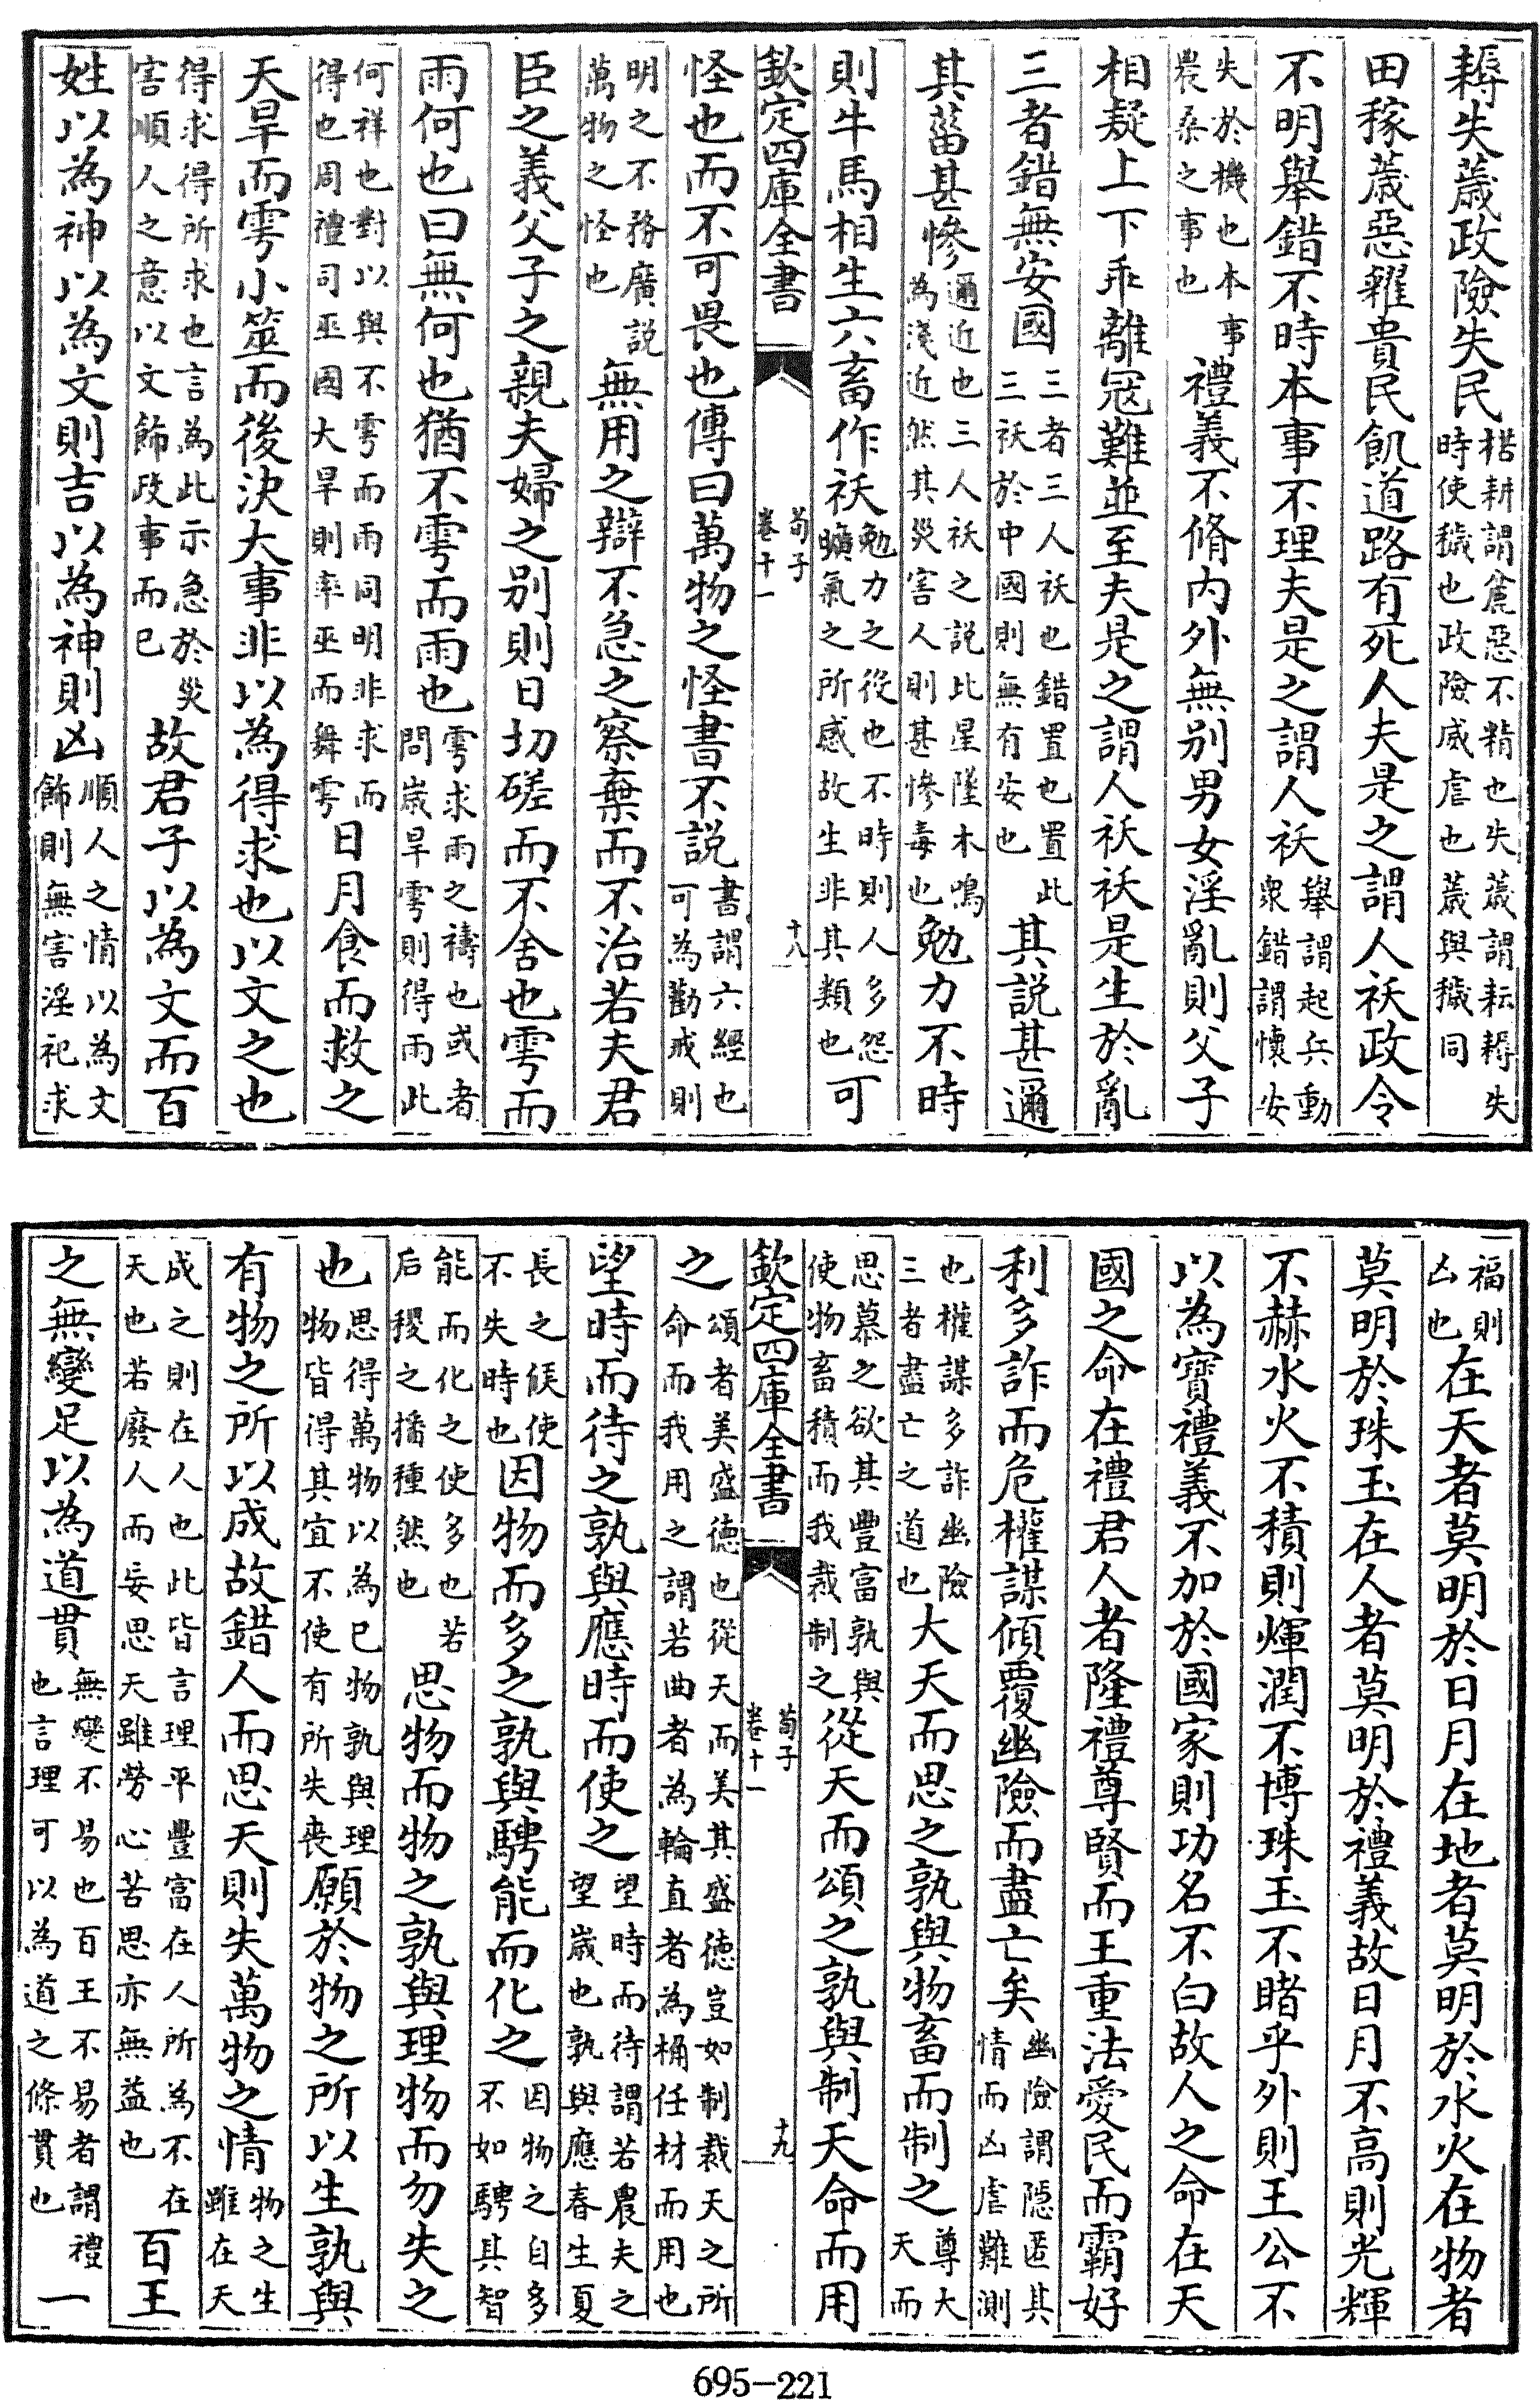 耨失薉政險失民楛耕謂麄惡不精也失薉謂耘耨失時使穢也政險威虐也薉與穢同
田稼薉惡糴貴民飢道路有死人夫是之謂人祅政令
不明舉錯不時本事不理夫是之謂人祅舉謂起兵動衆錯謂懷安
失於機也本事農桑之事也禮義不脩内外無别男女淫亂則父子
相疑上下乖離寇難並至夫是之謂人祅祅是生於亂
三者錯無安國三者三人祅也錯置也置此三祅於中國則無有安也其説甚邇
其菑甚慘邇近也三人祅之説比星隆木鳴為淺近然其災害人則甚慘毒也勉力不時
則牛馬相生六畜作祅勉力力之役也不時則人多怨曠氣之所感故生非其類也可
欽定四庫全書
荀子
卷十一
十八
怪也而不可畏也傳曰萬物之怪書不説書謂六經也可為勸戒則
明之不務廣説萬物之怪也無用之辯不急之察棄而不治若夫君
臣之義父子之親夫婦之别則日切磋而不舍也雩而
雨何也曰無何也猶不雩而雨也雩求雨之禱也或者問嵗旱雩則得雨此
何祥也對以與不雩而雨同明非求而得也周禮司巫國大旱則率巫而舞雩日月食而救之
天旱而雩小筮而後決大事非以為得求也以文之也
得求得所求也言為此示急於災害順人之意以文飾政事而已故君子以為文而百
姓以為神以為文則吉以為神則凶順人之情以為文飾則無害淫祀求
福則凶也在天者莫明於日月在地者莫明於水火在物者
莫明於珠玉在人者莫明於禮義故日月不高則光輝
不赫水火不積則煇潤不博珠玉不睹乎外則王公不
以為寶禮義不加於國家則功名不白故人之命在天
國之命在禮君人者隆禮尊賢而王重法愛民而霸好
利多詐而危權謀傾覆幽險而盡亡矣幽險謂隱匿其情而凶虐難測
也權謀多詐幽險三者盡亡之道也大天而思之孰與物畜而制之尊大天而
思慕之欲其豐富孰與使物畜積而我裁制之從天而頌之孰與制天命而用
欽定四庫全書
荀子
卷十一
十九
之頌者美盛德也從天而美其盛德豈如制裁天之所命而我用之謂若曲者為輪直者為桷任材而用也
望時而待之孰與應時而使之望時而待謂若農夫之望嵗也孰與應春生夏
長之候使不失時也因物而多之孰與騁能而化之因物之自多不如騁其智
能而化之使多也若后稷之播種然也思物而物之孰與理物而勿失之
也思得萬物以為已物孰與理物皆得其宜不使有所失喪願於物之所以生孰與
有物之所以成故錯人而思天則失萬物之情物之生雖在天
成之則在人也此皆言理平豐富在人所為不在天也若廢人而妄思天雖勞心苦思亦無益也百王
之無變足以為道貫無變不易也百王不易者謂禮也言理可以為道之條貫也一
695-221